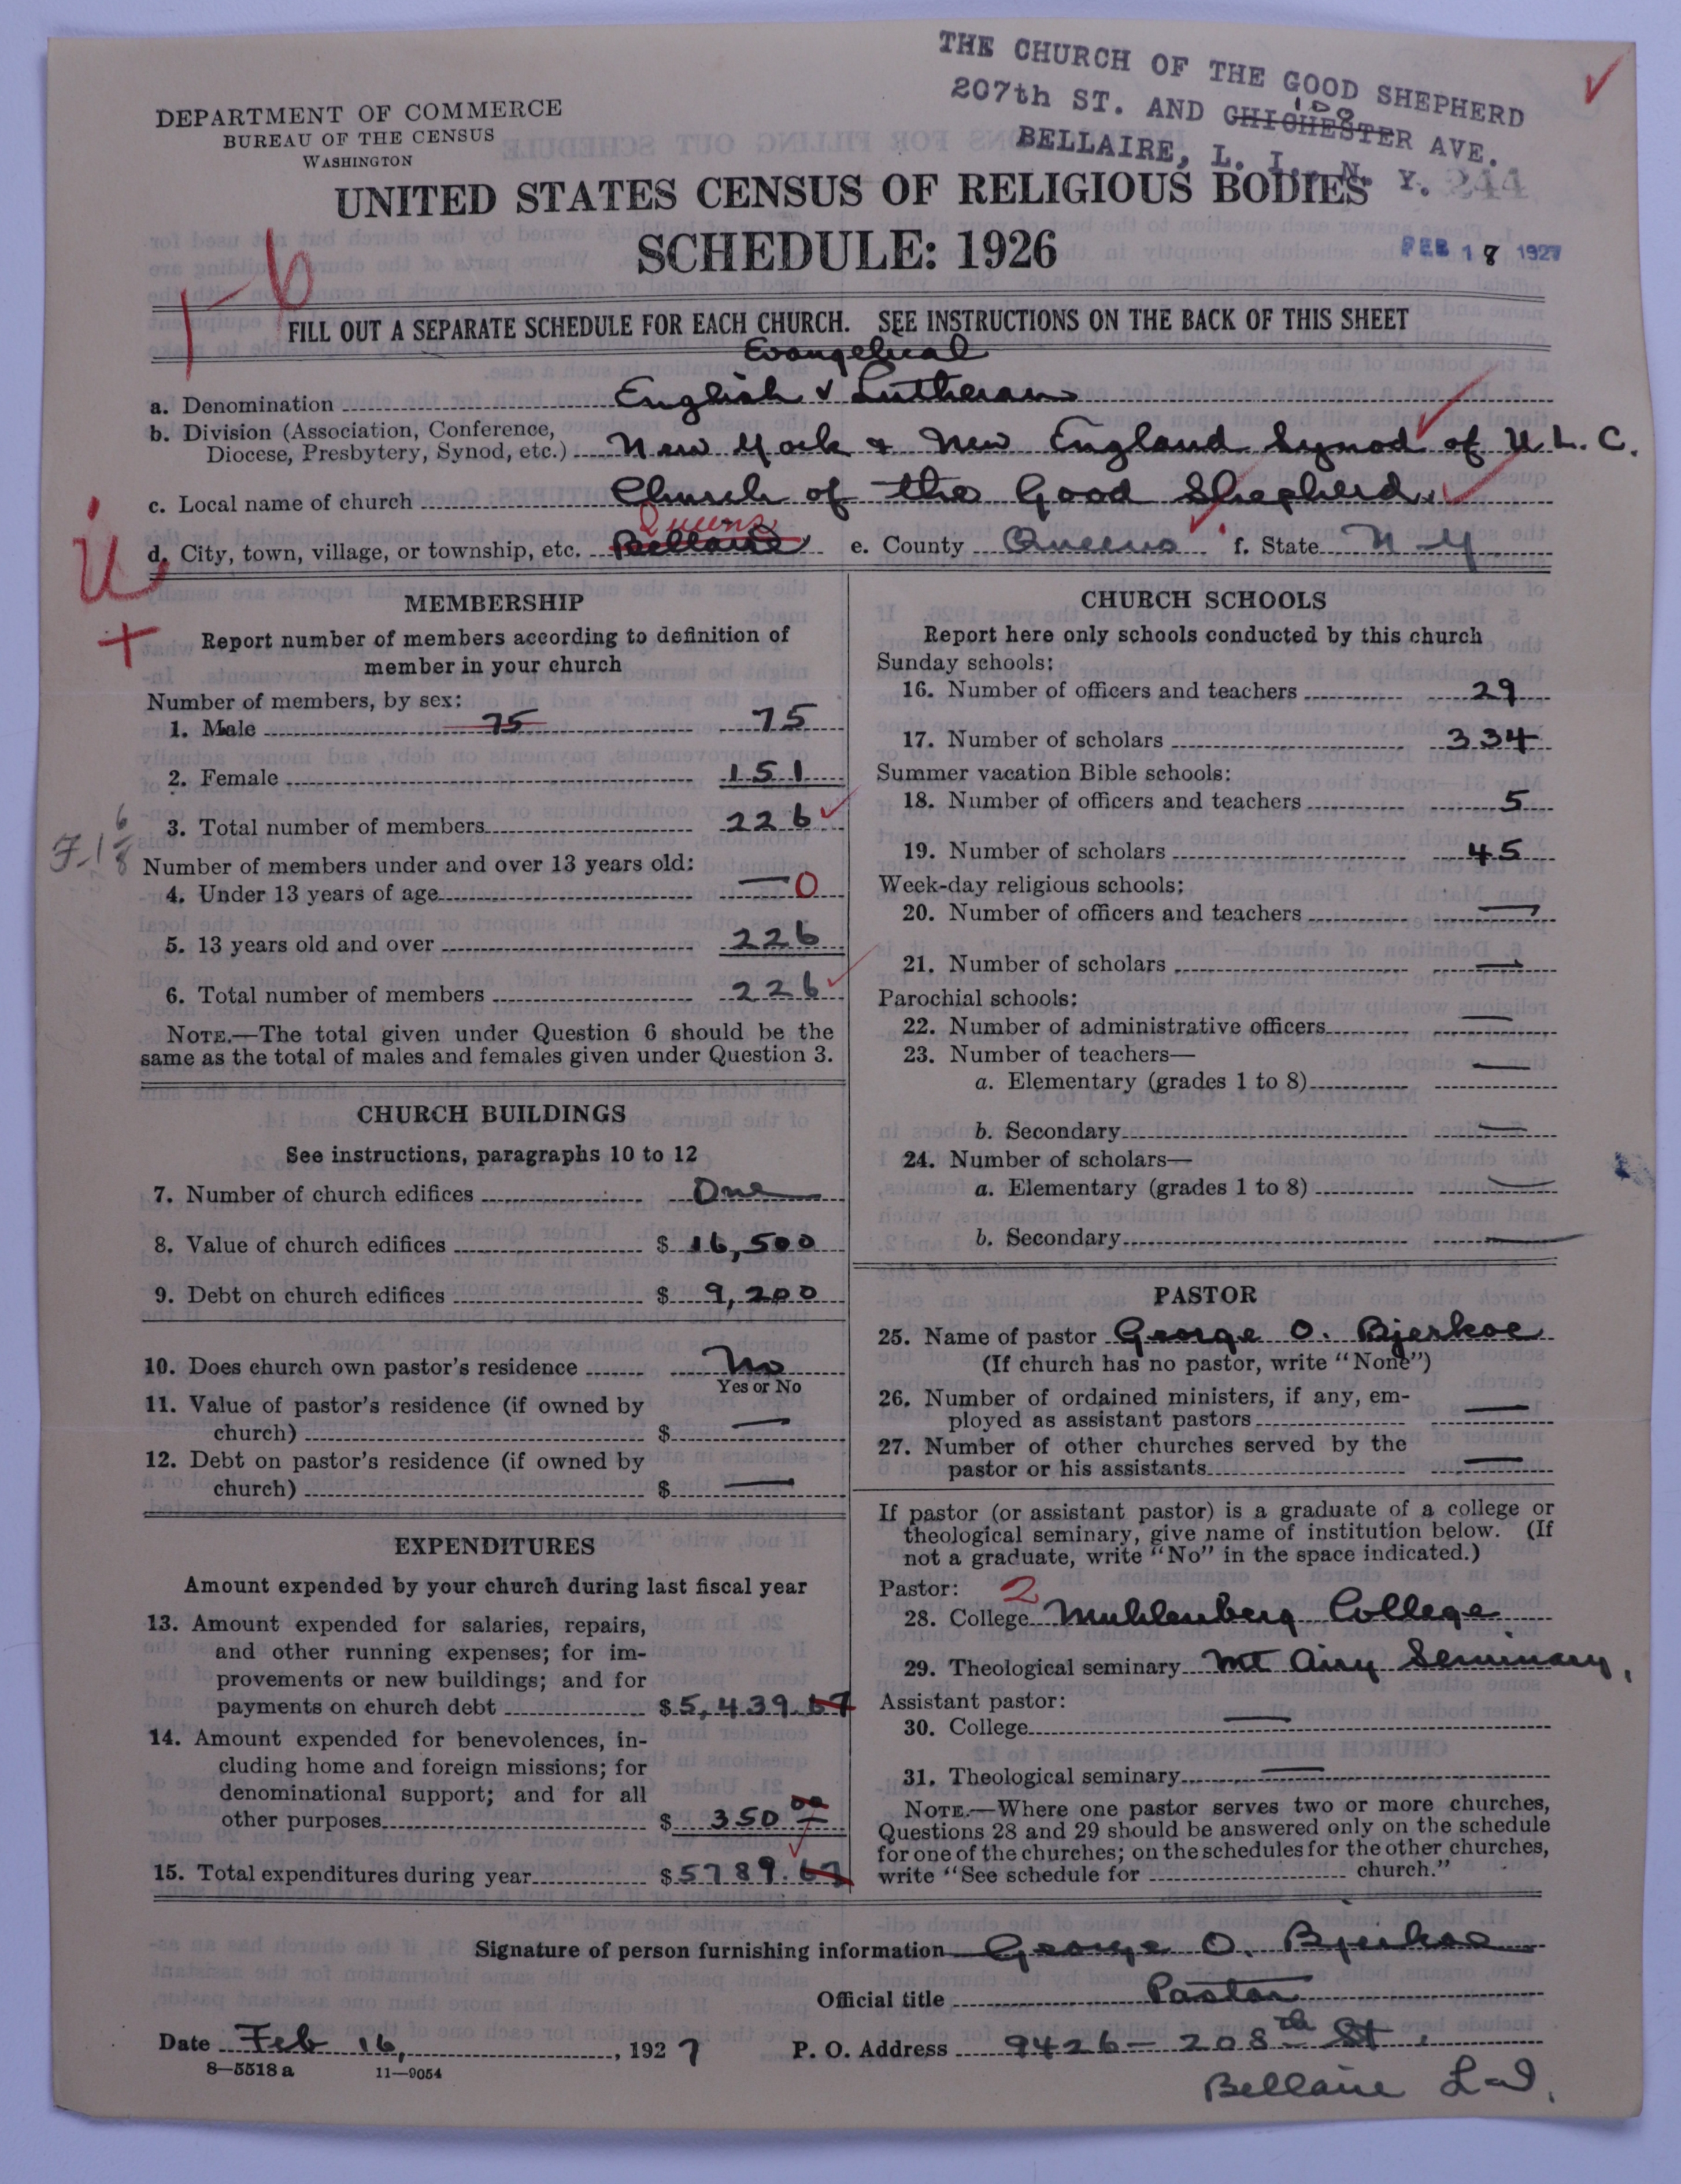 THE CHURCH OF THE GOOD SHEPHERD
207th ST. AND CHICHESTER AVE.
109
BELLAIRE, L. I., N. Y.
244
DEPARTMENT OF COMMERCE
BUREAU OF THE CENSUS
WASHINGTON
UNITED STATES CENSUS OF RELIGIOUS BODIES
SCHEDULE: 1926
FEB 18 1927
1-6
FILL OUT A SEPARATE SCHEDULE FOR EACH CHURCH. SEE INSTRUCTIONS ON THE BACK OF THIS SHEET
Evangelical
a. Denomination English v Lutheran
b. Division (Association, Conference, Diocese, Presbytery, Synod, etc.) New York & New England Synod of U. L. C.
c. Local name of church Church of the Good Shepherd
Queens
d. City, town, village, or township, etc. Bellaire e. County Queens f. State N Y
MEMBERSHIP
Report number of members according to definition of
member in your church
Number of members, by sex:
1. Male 75 75
2. Female 151
3. Total number of members 226
Number of members under and over 13 years old:
4. Under 13 years of age — 0
5. 13 years old and over 226
6. Total number of members 226
NOTE.—The total given under Question 6 should be the
same as the total of males and females given under Question 3.
CHURCH BUILDINGS
See instructions, paragraphs 10 to 12
7. Number of church edifices One
8. Value of church edifices $ 16,500
9. Debt on church edifices $ 9,200
10. Does church own pastor's residence No
Yes or No
11. Value of pastor's residence (if owned by
church) $ —
12. Debt on pastor's residence (if owned by
church) $ —
EXPENDITURES
Amount expended by your church during last fiscal year
13. Amount expended for salaries, repairs,
and other running expenses; for im-
provements or new buildings; and for
payments on church debt $5,439.67
14. Amount expended for benevolences, in-
cluding home and foreign missions; for
denominational support; and for all
other purposes $ 350 00
15. Total expenditures during year $5789.67
CHURCH SCHOOLS
Report here only schools conducted by this church
Sunday schools:
16. Number of officers and teachers 29
17. Number of scholars 334
Summer vacation Bible schools:
18. Number of officers and teachers 5
19. Number of scholars 45
Week-day religious schools:
20. Number of officers and teachers —
21. Number of scholars —
Parochial schools:
22. Number of administrative officers —
23. Number of teachers—
a. Elementary (grades 1 to 8) —
b. Secondary —
24. Number of scholars—
a. Elementary (grades 1 to 8) —
b. Secondary —
PASTOR
25. Name of pastor George O. Bjerkoe
(If church has no pastor, write "None")
26. Number of ordained ministers, if any, em-
ployed as assistant pastors —
27. Number of other churches served by the
pastor or his assistants —
If pastor (or assistant pastor) is a graduate of a college or
theological seminary, give name of institution below. (If
not a graduate, write "No" in the space indicated.)
Pastor: 2
28. College Muhlenberg College
29. Theological seminary Mt Airy Seminary,
Assistant pastor:
30. College —
31. Theological seminary —
NOTE.—Where one pastor serves two or more churches,
Questions 28 and 29 should be answered only on the schedule
for one of the churches; on the schedules for the other churches,
write "See schedule for church."
Signature of person furnishing information George O. Bjerkoe
Official title Pastor
Date Feb 16, 1927 P. O. Address 9426–208th St.,
8—5518 a 11—9054
Bellaire L–I.